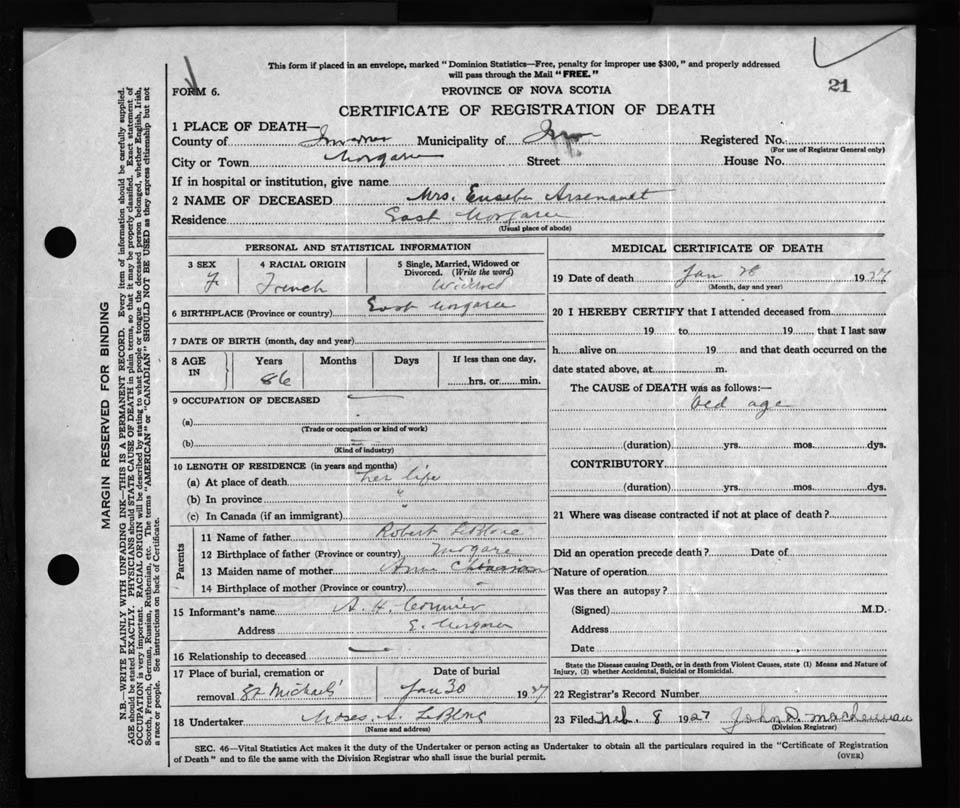 This form if placed in an envelope, marked "Dominion Statistics—Free, penalty for improper use $300," and properly addressed
will pass through the Mail "FREE."
21
FORM 6.
PROVINCE OF NOVA SCOTIA
CERTIFICATE OF REGISTRATION OF DEATH
1 PLACE OF DEATH—
County of Municipality of Registered No.
(For use of Registrar General only)
City or Town Street House No.
If in hospital or institution, give name
2 NAME OF DECEASED Mrs. Arsenault
Residence East
(Usual place of abode)
PERSONAL AND STATISTICAL INFORMATION
3 SEX F. 4 RACIAL ORIGIN French 5 Single, Married, Widowed or Divorced. (Write the word) Widowed
6 BIRTHPLACE (Province or country) East
7 DATE OF BIRTH (month, day and year)
8 AGE IN Years 86 Months Days If less than one day, hrs. or min.
9 OCCUPATION OF DECEASED
(a)
(Trade or occupation or kind of work)
(b)
(Kind of industry)
10 LENGTH OF RESIDENCE (in years and months)
(a) At place of death her life
(b) In province "
(c) In Canada (if an immigrant) "
Parents
11 Name of father Robert LeBlanc
12 Birthplace of father (Province or country)
13 Maiden name of mother
14 Birthplace of mother (Province or country)
15 Informant's name A. H. Cormier
Address E.
16 Relationship to deceased
17 Place of burial, cremation or removal St Michaels' Date of burial Jan 30 1927
18 Undertaker Moses A. LeBlanc
(Name and address)
MEDICAL CERTIFICATE OF DEATH
19 Date of death Jan 28 1927
(Month, day and year)
20 I HEREBY CERTIFY that I attended deceased from
19 to 19, that I last saw
h alive on 19 and that death occurred on the
date stated above, at m.
The CAUSE of DEATH was as follows:—
Old age
(duration) yrs. mos. dys.
CONTRIBUTORY
(duration) yrs. mos. dys.
21 Where was disease contracted if not at place of death?
Did an operation precede death? Date of
Nature of operation
Was there an autopsy?
(Signed) M.D.
Address
Date
State the Disease causing Death, or in death from Violent Causes, state (1) Means and Nature of
Injury, (2) whether Accidental, Suicidal or Homicidal.
22 Registrar's Record Number
23 Filed Feb. 8 1927 John D.
(Division Registrar)
SEC. 46—Vital Statistics Act makes it the duty of the Undertaker or person acting as Undertaker to obtain all the particulars required in the "Certificate of Registration
of Death" and to file the same with the Division Registrar who shall issue the burial permit.
(OVER)
MARGIN RESERVED FOR BINDING
N.B.—WRITE PLAINLY WITH UNFADING INK—THIS IS A PERMANENT RECORD. Every item of information should be carefully supplied.
AGE should be stated EXACTLY. PHYSICIANS should STATE CAUSE OF DEATH in plain terms, so that it may be properly classified. Exact statement of
OCCUPATION is very important. RACIAL ORIGIN will be described by stating to what people or tongue the deceased person belonged, whether English, Irish,
Scotch, French, German, Russian, Ruthenian, etc. The terms "AMERICAN" or "CANADIAN" SHOULD NOT BE USED as they express citizenship but not
a race or people. See instructions on back of Certificate.